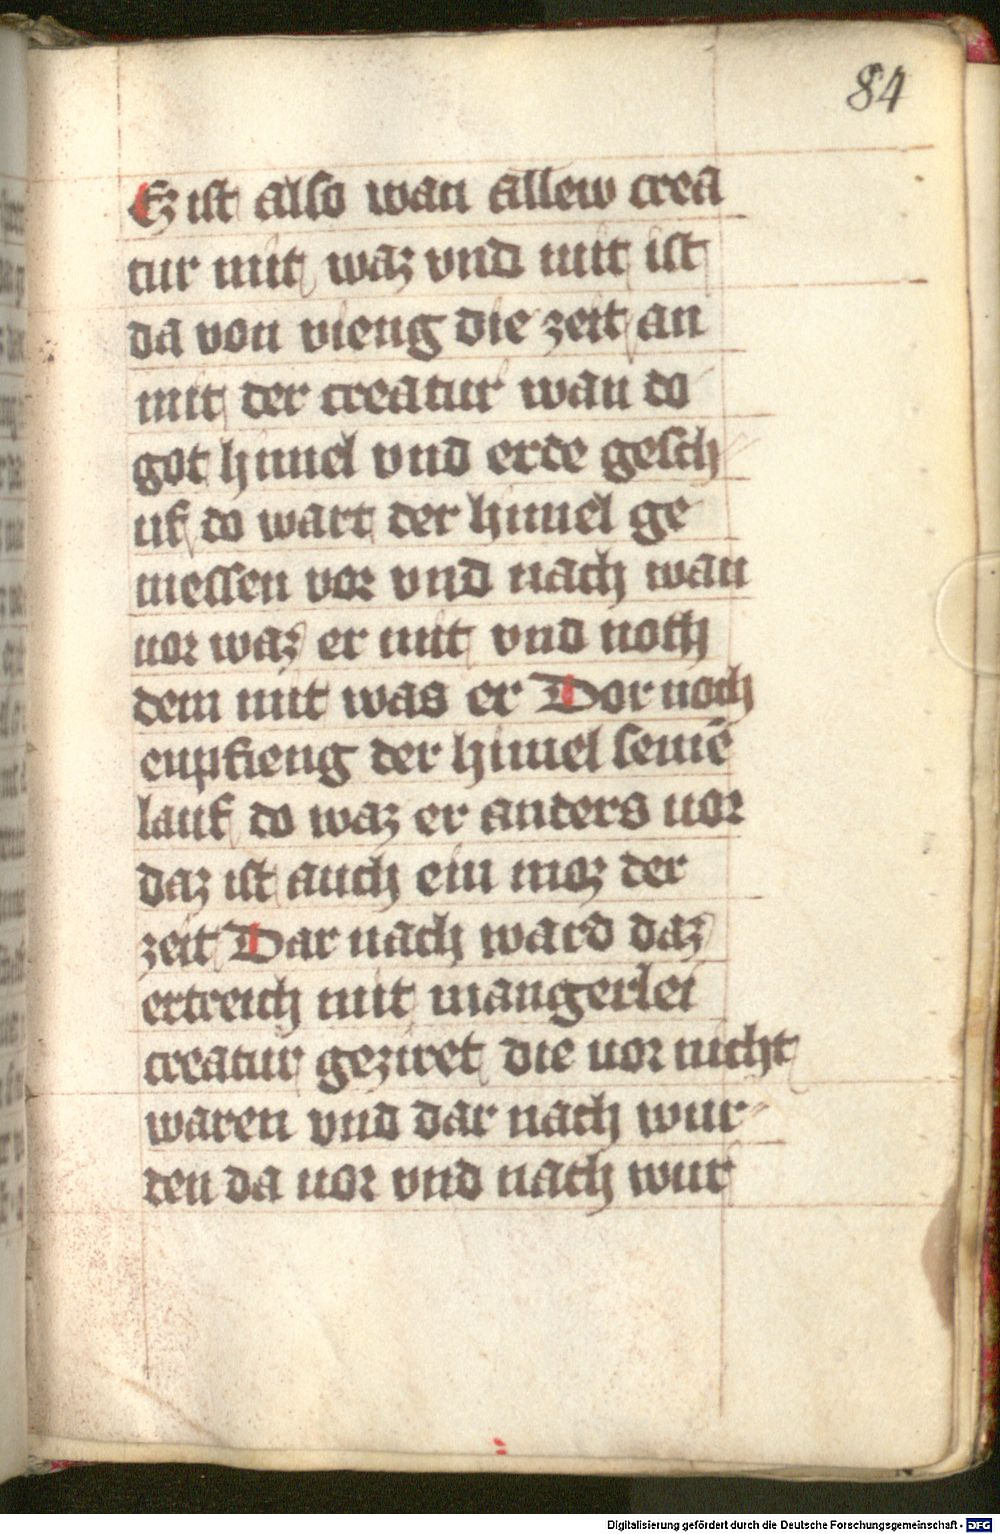 84
Ez ist also wan allew crea
tur nit waz vnd nit ist
da von vieng die zeit an
mit der creatur wan do
got himel vnd erde gesch
uf do wart der himel ge
messen vor vnd nach wan
uor waz er nit vnd noch
dem nit was er Dor noch
enpfieng der himel seinē
lauf do waz er anders uor
daz ist auch ein moz der
zeit Dar nach ward daz
ertreich mit mangerlei
creatur geziret die uor nicht
waren vnd dar nach wur-
den da uor vnd nach wur
Digitalisierung gefördert durch die Deutsche Forschungsgemeinschaft - DFG